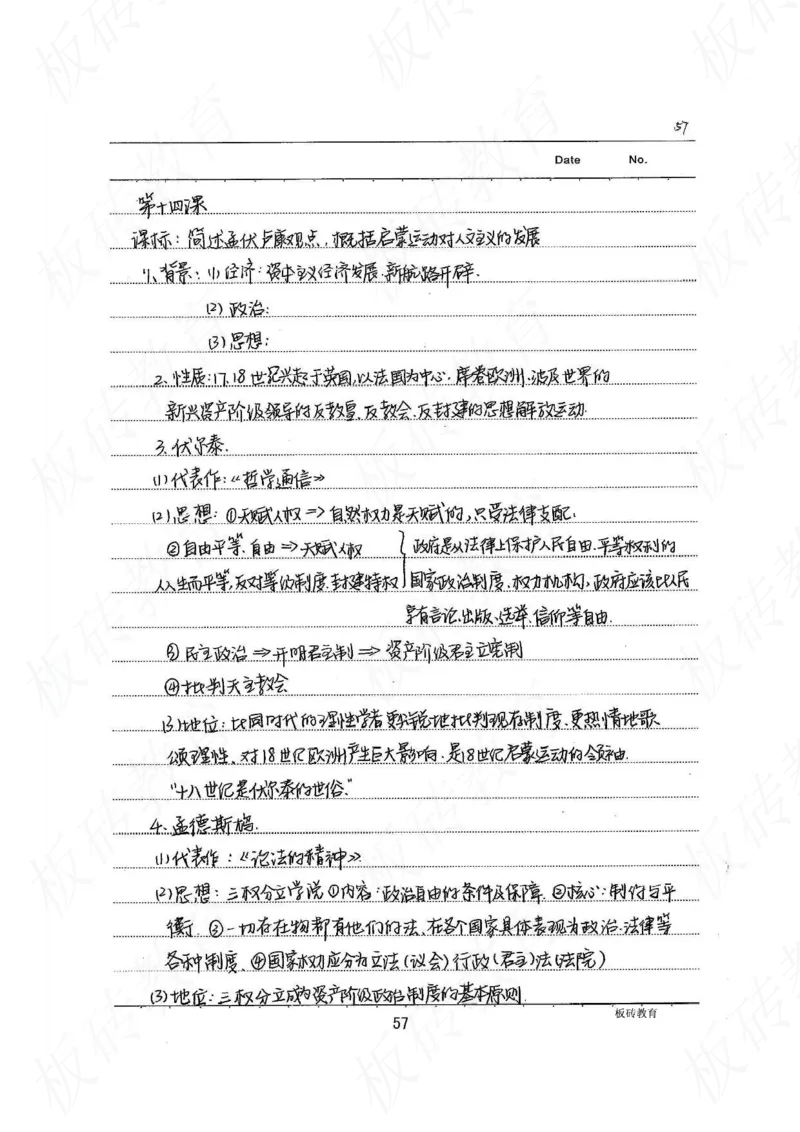 57
Date No.
第十四课
课标：简述孟伏卢康观点，概括启蒙运动对人文主义的发展
1、背景：(1)经济：资本主义经济发展.新航路开辟.
(2)政治：
(3)思想：
2、性质：17、18世纪兴起于英国，以法国为中心.席卷欧洲.涉及世界的
新兴资产阶级领导的反教皇、反教会、反封建的思想解放运动.
3.伏尔泰.
(1)代表作：《哲学通信》
(2)思想：①天赋人权=>自然权力是天赋的，只受法律支配.
②自由平等.自由=>天赋人权
人人生而平等，反对等级制度.封建特权
政府是从法律上保护人民自由.平等权利的
国家政治制度、权力机构，政府应该让人民
享有言论、出版、选举、信仰等自由.
③民主政治=>开明君主制=>资产阶级君主立宪制
④批判天主教会
(3)地位：比同时代的理性学者更尖锐地批判现存制度、更热情地歌
颂理性、对18世纪欧洲产生巨大影响.是18世纪启蒙运动的领袖.
"十八世纪是伏尔泰的世俗."
4、孟德斯鸠.
(1)代表作：《论法的精神》
(2)思想：三权分立学院①内容：政治自由的条件及保障.②核心：制约与平
衡.③一切存在物都有他们的法、在各个国家具体表现为政治.法律等
各种制度、④国家权力应分为立法(议会)行政(君主)法(法院)
(3)地位：三权分立成为资产阶级政治制度的基本原则.
板砖教育
57